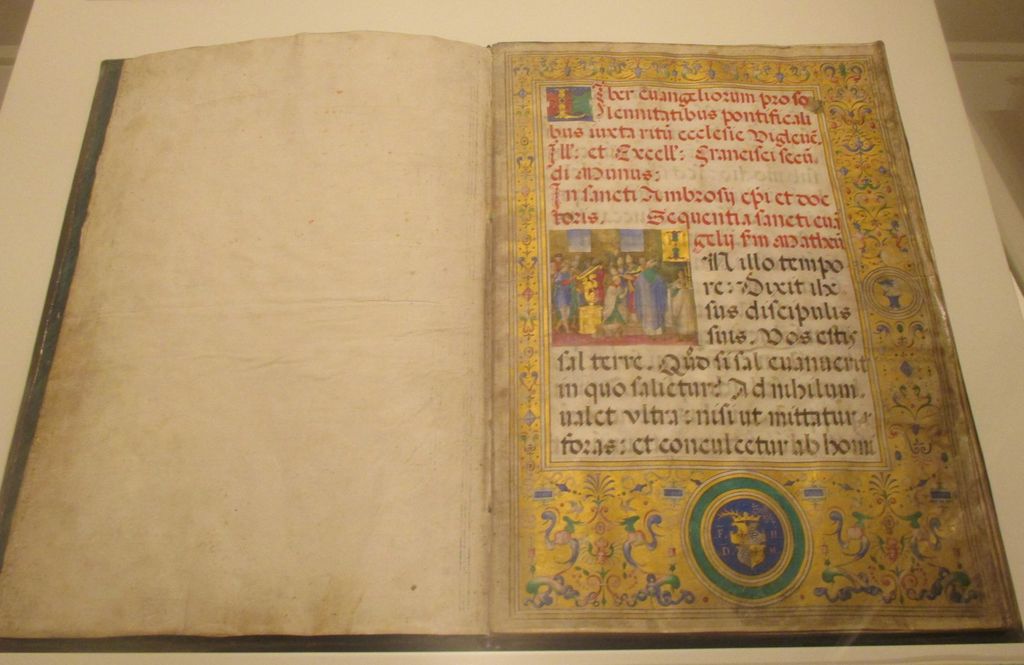 Liber Euangeliorum pro so
lennitatibus pontificali
bus iuxta ritū ecclesie Vigleuē.
Ill: et Excell: Francisci secū.
di Munus:
In sancti Ambrosij epi et doc
toris. Sequentia sancti euā
gelij sm Matheū
IN illo tempo
re: Dixit ihe
sus discipulis
suis. Vos estis
sal terre. Quod si sal euanuerit
in quo salietur? Ad nihilum
ualet vltra: nisi ut mittatur
foras: et conculcetur ab homi